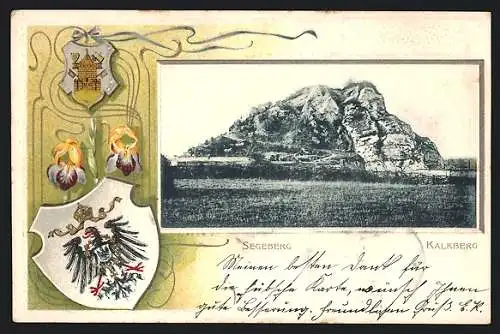 SEGEBERG KALKBERG
Meinen besten Dank für
die hübsche Karte, wünsch Ihnen
gute Besserung. Freundlichen Gruß. E. K.